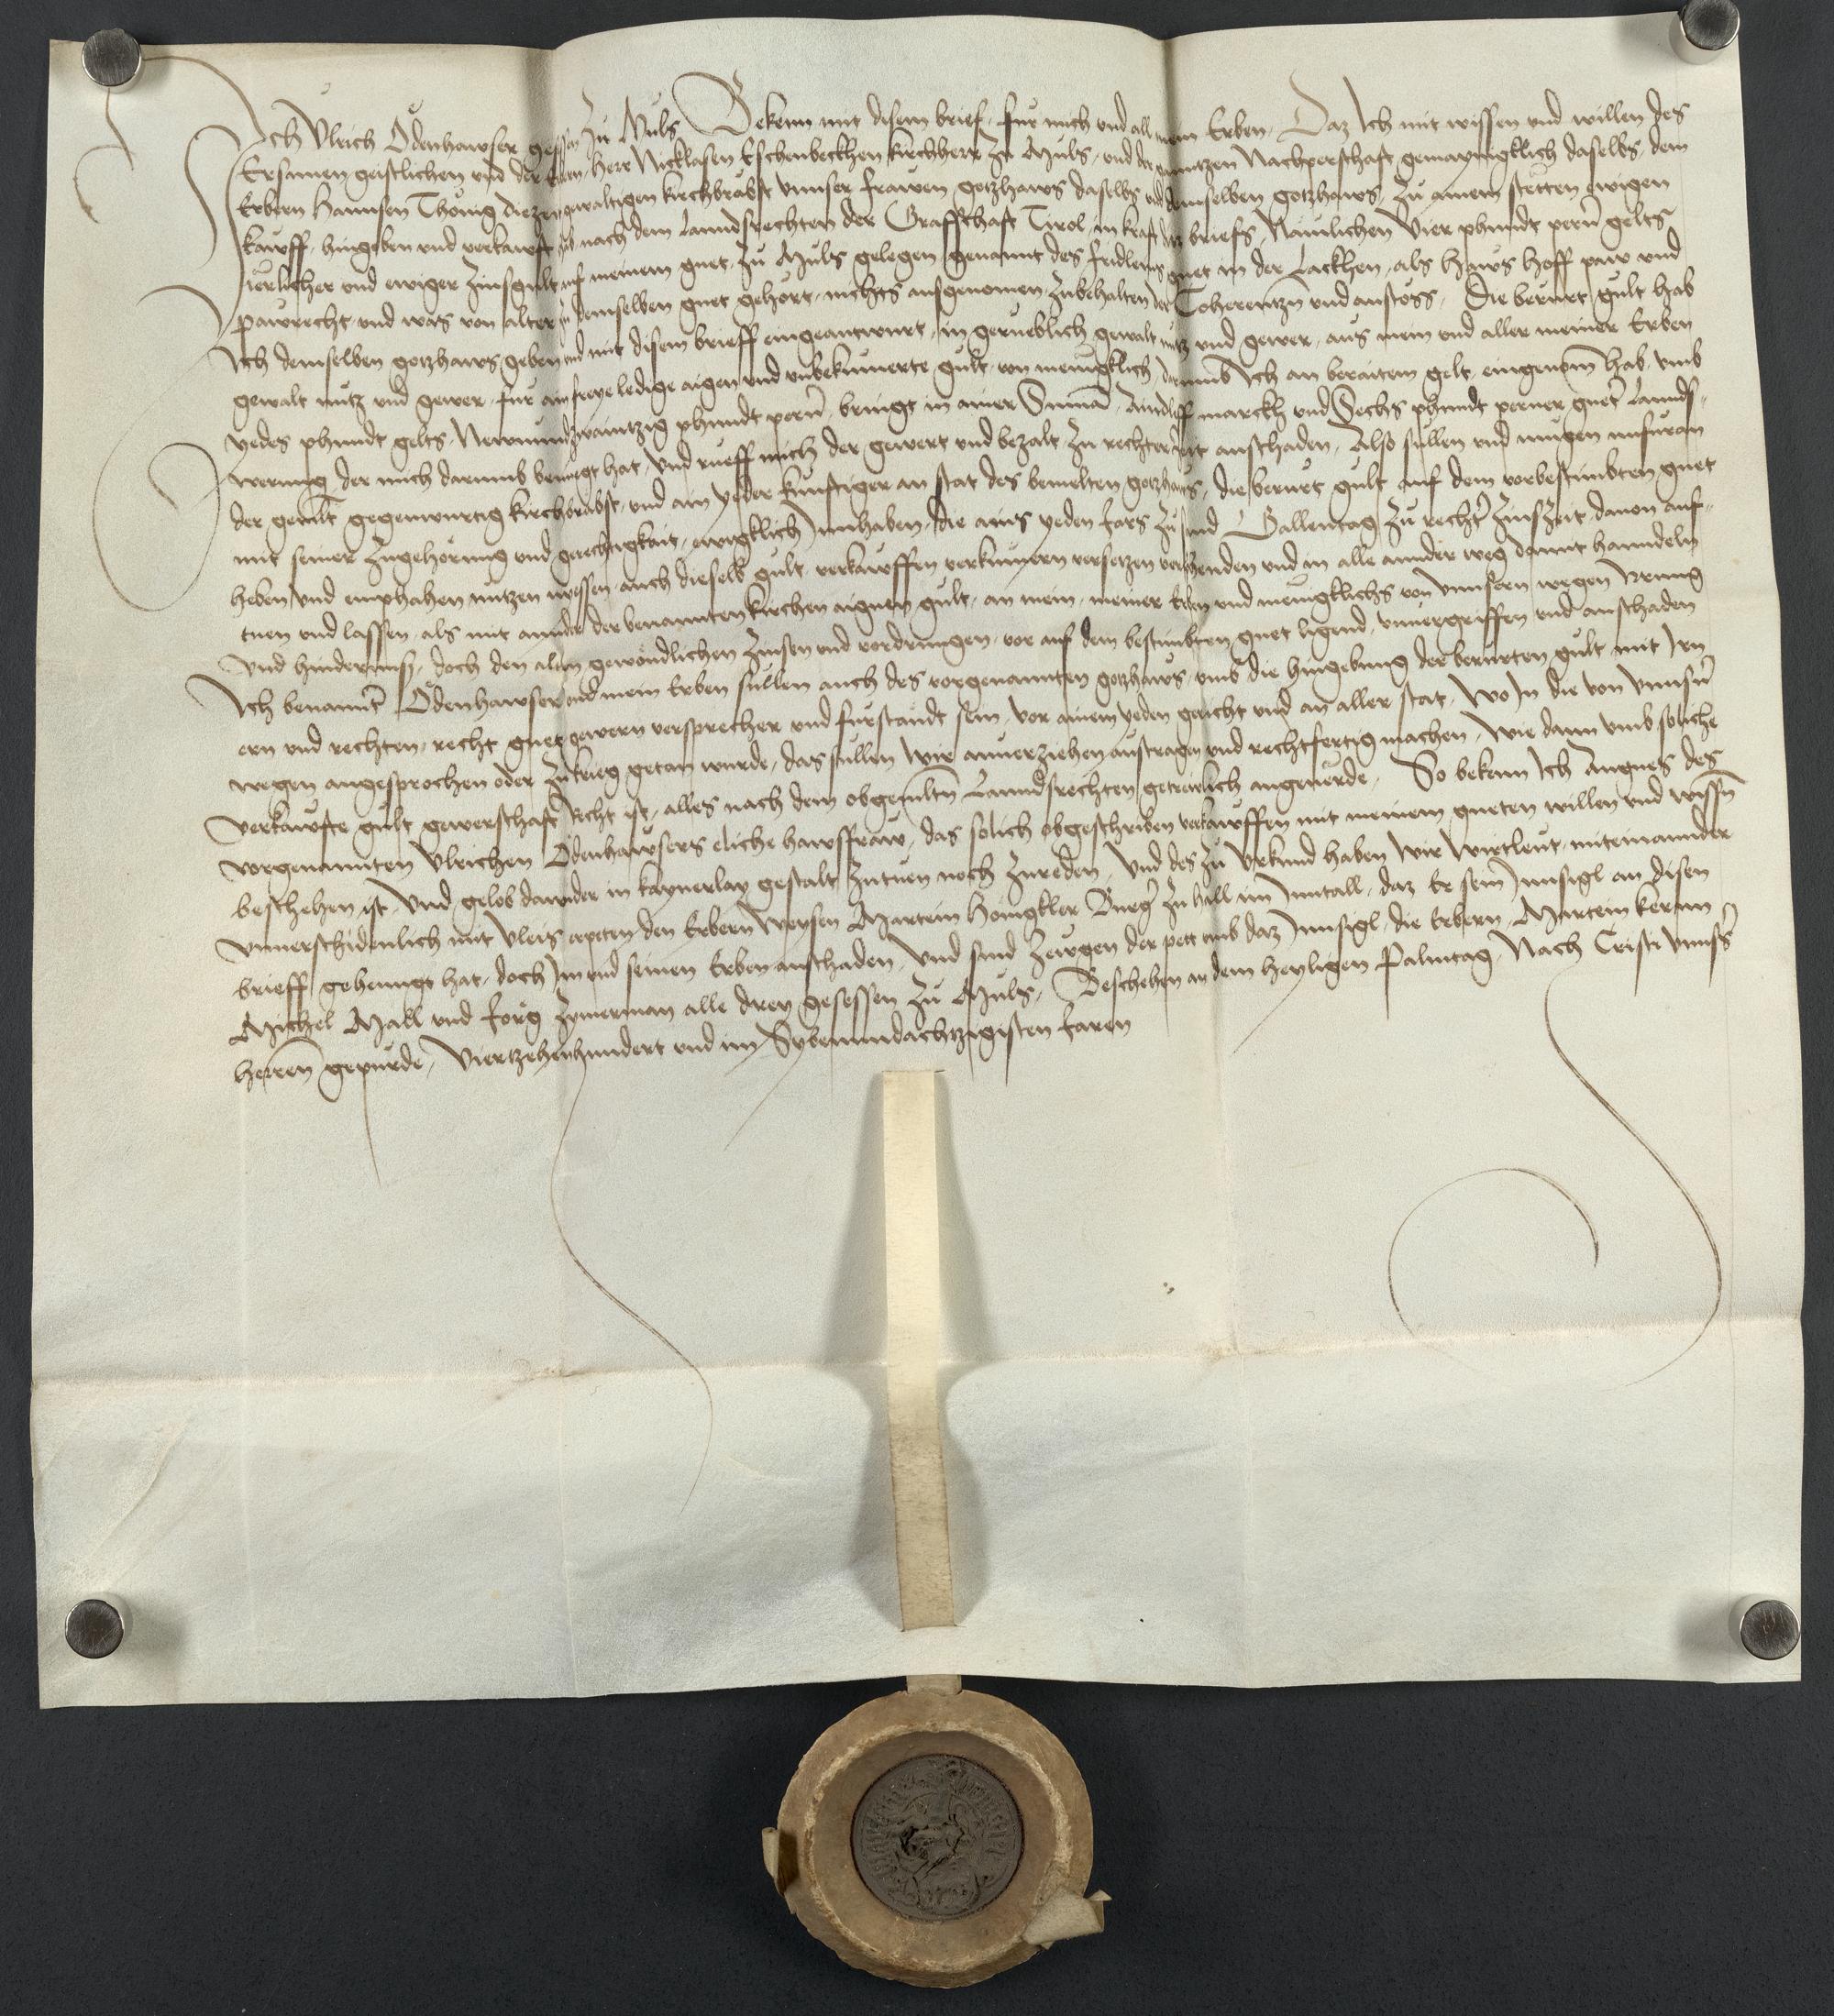 Ich Ulrich Ödenhawser gesessen zu Mŭls Bekenn mit disem brief, fur mich und all mein Erben, Daz Ich mit wissen und willen des
Ersamen geistlichen und der Erbern, herr Nicklasen Eschenbeckhen kirchherr zu Mŭls, und der ganntzen Nachperschaft gemaynigklich daselbs, dem
Erbern Hannsen Thönig diezeyt gewaltigen kirchbräbst unnser frawen gotzhaws daselbs und demselben gotzhaws, zu ainem stetten ewigen
kawff, hingeben und verkawft hab nach dem Lanndsrechten der Graffschaft Tirol, in kraft ditz briefs, Namlichen Vier phundt perner gelts
järlicher und ewiger Zinsgult auf meinem guet, zu Mŭls gelegen, genannt des fridleins guet in der Lackhen, als Haws Hoff paw und
pawrecht, und was von alter zu demselben guet gehört, nichts ausgenomen, zubehalten der Coherentzn und anstöss, Die berurt gult hab
Ich demselben gotzhaws geben und mit disem brieff eingeantwurt, in gerueblich gewalt nutz und gewer, aus mein und aller meiner Erben
gewalt nutz und gewer, fur ain freye ledige aigen und unbekumerte gult, von menigklich, darumb Ich an beraitem gelt, eingenom̄ hab, umb
yedes phundt gelts, Newnundzwaintzig phundt pern̄, bringt in ainer Summā, Aindliff marckh und Sechs phundt perner, gueter Lannds-
werung, der mich darumb benuegt hat, und rueff mich der gewert und bezalt zu rechter zeit anschaden, Also sullen und mugen nufuran
der gemelt gegenwurtig kirchbräbst, und ain yeder kunftiger an stat des bemelten gotzhaws, die berurt gult auf dem vorbestimbten guet
mit seiner zugehörung und gerechtigkait, ewigklich Innhaben, die ains yeden Jars zu sand Gallentag zu rechter Zinszeit, davon auf-
heben und emphahen nutzen niessen, auch dieselb gult, verkawffen verkumern versetzen verphenden und in alle annder weg damit hanndeln
tuen und lassen, als mit annder der benannten kirchen aigen gult, an mein, meiner Erben und menigklichs von unnsern wegen Irrung
und hindernuss, doch den alten gewöndlichen Zinsen und vordrungen, vor auf dem bestimbten guet ligend, unvergriffen und anschaden
Ich benannter Ödenhawser und mein Erben sullen auch des vorgenannten gotzhaws, umb die hingebung der berurten gult, mit Irn
ern und rechten, recht guet gewern versprecher und furstandt sein, vor ainem yeden gericht und an aller stat, Wo In die von unnsern
wegen angesprochen oder zu krieg getan wurde, das sullen Wir anverziehen austragen und rechtfertig machen, wie dann umb soliche
verkawfte gult gewerschaft Recht ist, alles nach dem obgemelten Lanndsrechten getrewlich angeverde, So bekenn Ich Anngnes des
vorgenannten Ulrichen Ödenhawsers eliche hawsfraw, das solich obgeschriben verkawffen mit meinem gueten willen und wissen
beschehen ist, Und gelob dawider in kaynerlay gestalt zutuen noch zureden, Und des zu Urkund haben Wir Wirtleut, miteinannder
unverschidenlich mit vleis erpeten den Erbern Weysen Martein Hönigkler Burger zu Hall im Inntall, daz Er sein Innsigl an disen
brieff gehenngt hat, doch Im und seinen Erben anschaden, Und sind Zewgen der pett umb daz Innsigl, die Erbern, Martein kernn
Michel Mall und Jörg Zymerman alle drey gesessen zu Mŭls, Beschehen an dem heyligen Palmtag, Nach Cristi unnsers
herren gepurde, Viertzehenhundert und im Sybenundachtzigisten Jaren